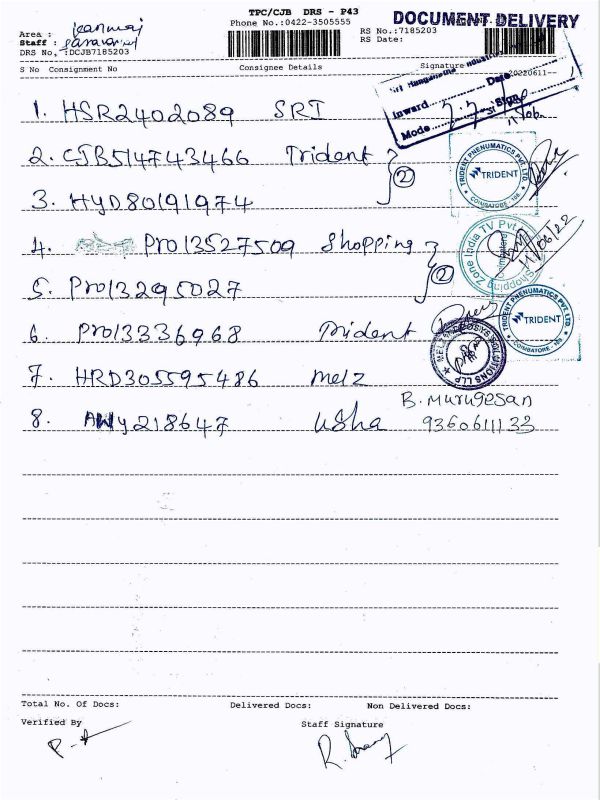 TPC/CJB DRS - P43
DOCUMENT DELIVERY
Phone No.:0422-3505555
RS No.:7185203
Area :
RS Date:
Staff : Saravanan
DRS No. :DCJB7185203
S No Consignment No Consignee Details Signature
20220611--
Inward Date
Mode Sign
1. HSR2402089 SRI
2. CJB514743466 Trident
(2)
3. HYD80191974
TRIDENT PNEUMATICS PVT. LTD.
TRIDENT
COIMBATORE
4. Pro13527509 Shopping
(2)
Shopping Zone India TV Pvt
11/06/22
5. Pro13295027
6. Pro13336968 Trident
TRIDENT PNEUMATICS PVT. LTD.
TRIDENT
COIMBATORE
7. HRD305595486 Melz
SOLUTIONS LLP
B. Murugesan
8. AWY218647 Usha 9360611133
Total No. Of Docs: Delivered Docs: Non Delivered Docs:
Verified By Staff Signature